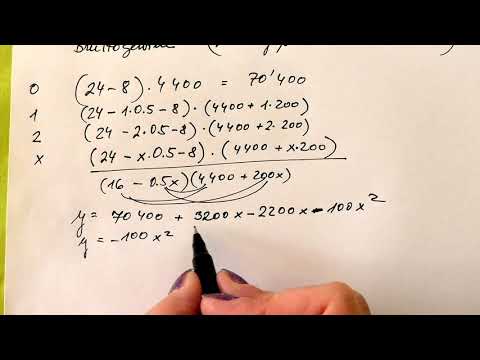 Bruttogewinn (
0 (24-8) · 4400 = 70'400
1 (24 - 1·0.5-8) · (4400 + 1·200)
2 (24 - 2·0.5-8) · (4400 + 2·200)
x (24 - x·0.5-8) · (4400 + x·200)
(16 - 0.5x)(4400 + 200x)
y = 70400 + 3200x - 2200x - 100x²
y = -100x²